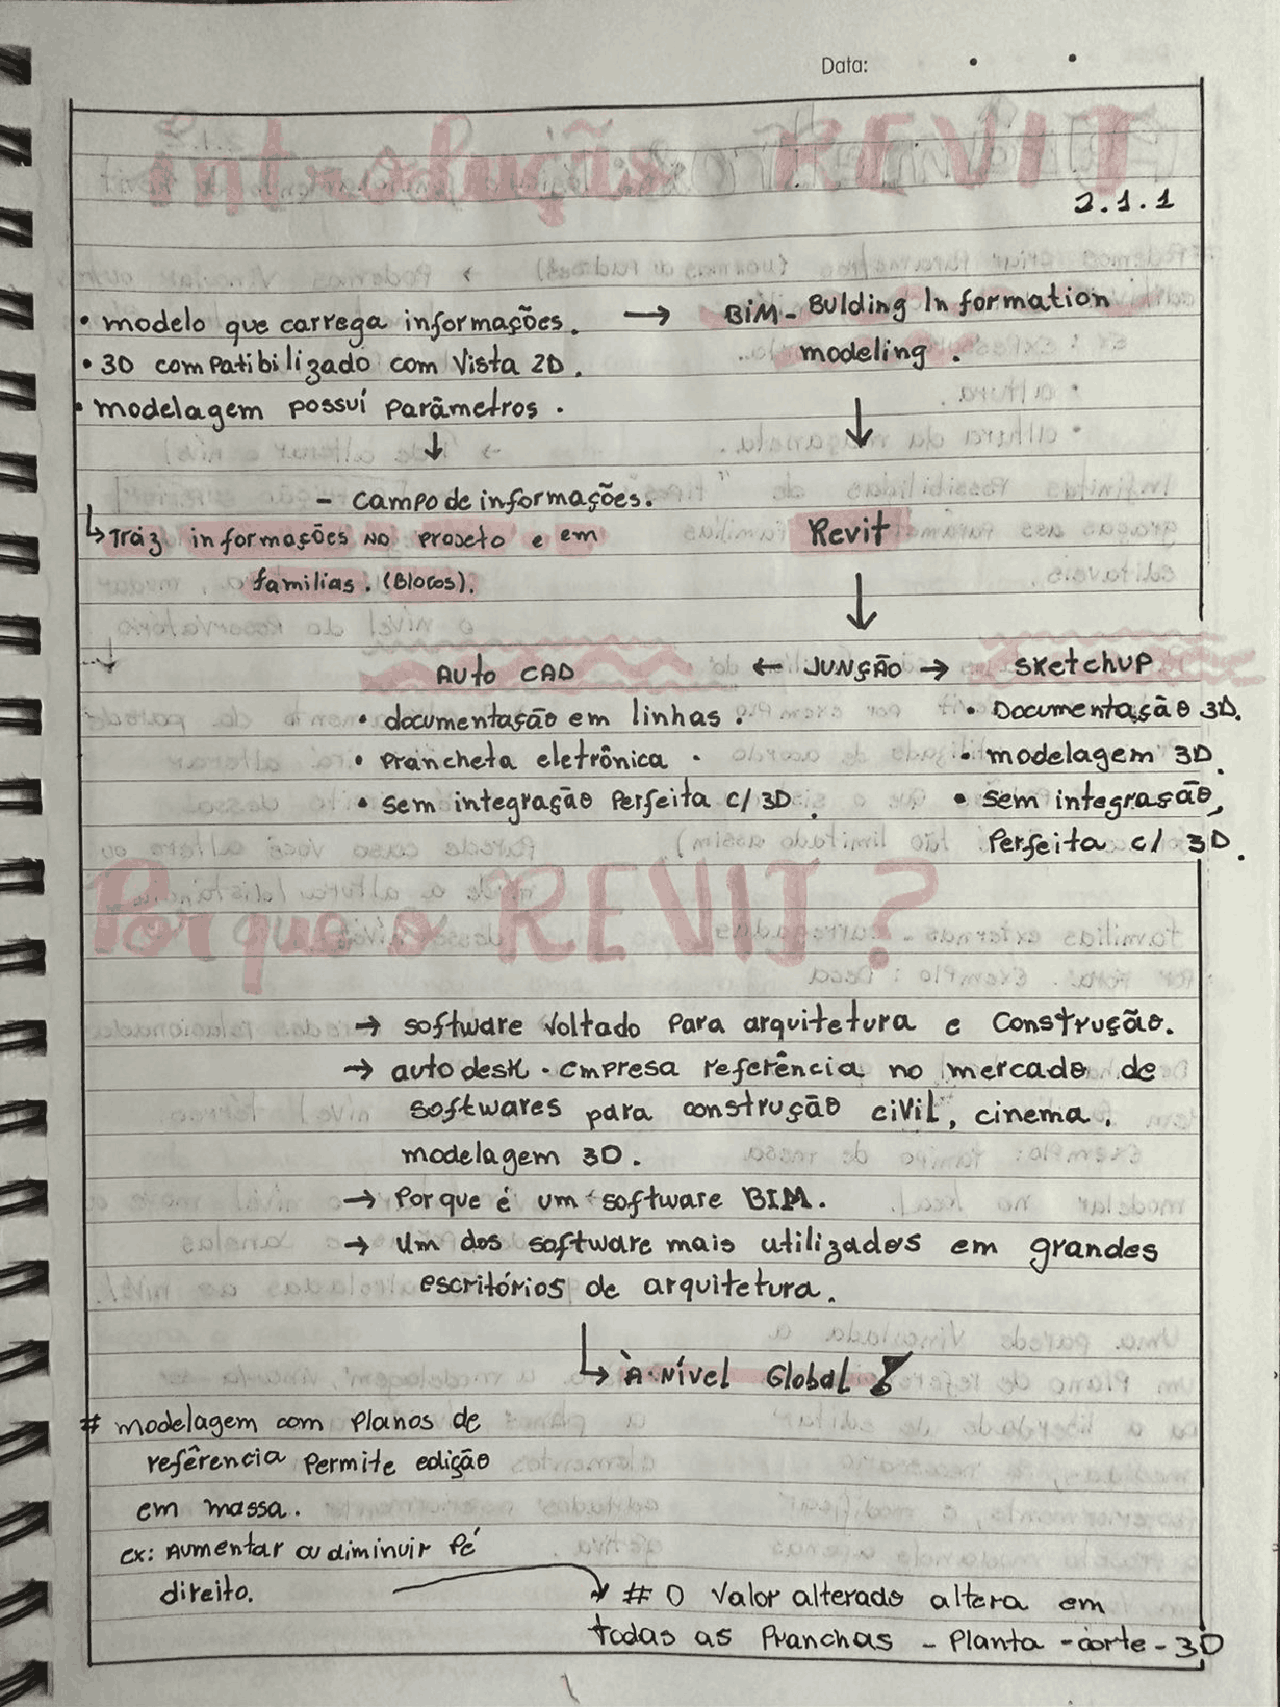 Data:
introdução REVIT
2.1.1
• modelo que carrega informações. → BIM - Bulding Information
modeling.
• 3D compatibilizado com Vista 2D.
• modelagem possuí parâmetros.
↓
↓
- campo de informações.
↳ Traiz informações no projeto e em
familias. (Blocos).
Revit
↓
Auto CAD ← JUNÇÃO → Sketchup
• documentação em linhas.
• Prancheta eletrônica.
• Sem integração Perfeita c/ 3D.
• Documentação 3D.
• modelagem 3D.
• Sem integração,
Perfeita c/ 3D.
Por que o REVIT?
→ software Voltado Para arquitetura e Construção.
→ autodesk. Empresa referência no mercado de
softwares para construção civil, cinema.
modelagem 3D.
→ Porque é um software BIM.
→ Um dos software mais utilizados em grandes
escritórios de arquitetura.
↳ À Nível Global !
# modelagem com Planos de
refêrencia Permite edição
em massa.
ex: Aumentar ou diminuir Pé
direito.
# O Valor alterado altera em
todas as Pranchas - Planta - corte - 3D